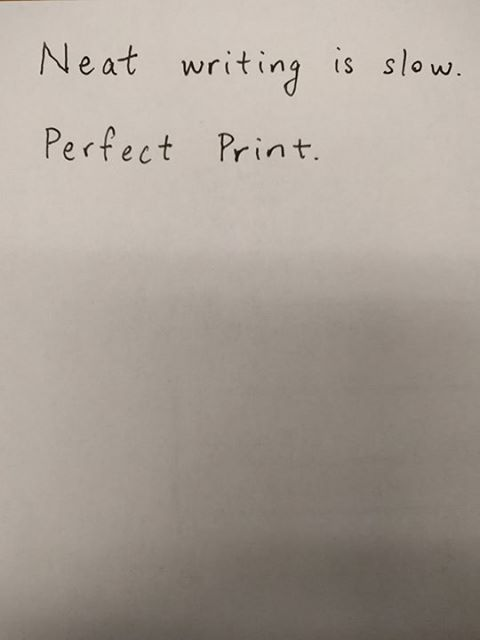 Neat writing is slow.
Perfect Print.